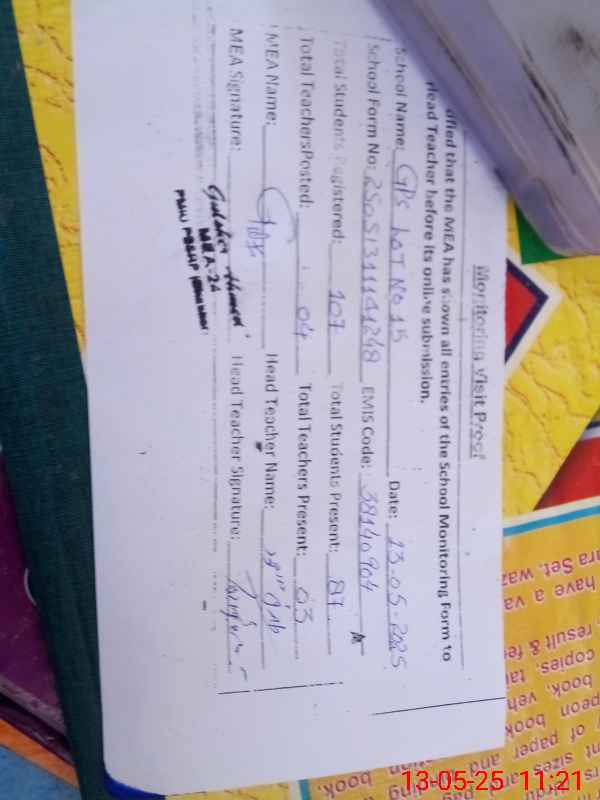 Monitoring Visit Proof
ified that the MEA has shown all entries of the School Monitoring Form to
Head Teacher before its online submission.
School Name: GPS LOT NO 15 Date: 13-05-2025
School Form No: 25051311141248 EMIS Code: 38140904
Total Students Registered: 107 Total Students Present: 87
Total Teachers Posted: 04 Total Teachers Present: 03
MEA Name: Head Teacher Name:
MEA Signature: Head Teacher Signature:
MEA-24
ara Set, waz
have a va
result & fe
copies, tai
book, veh
peon book
of paper
nt sizes
and
book,
13-05-25 11:21